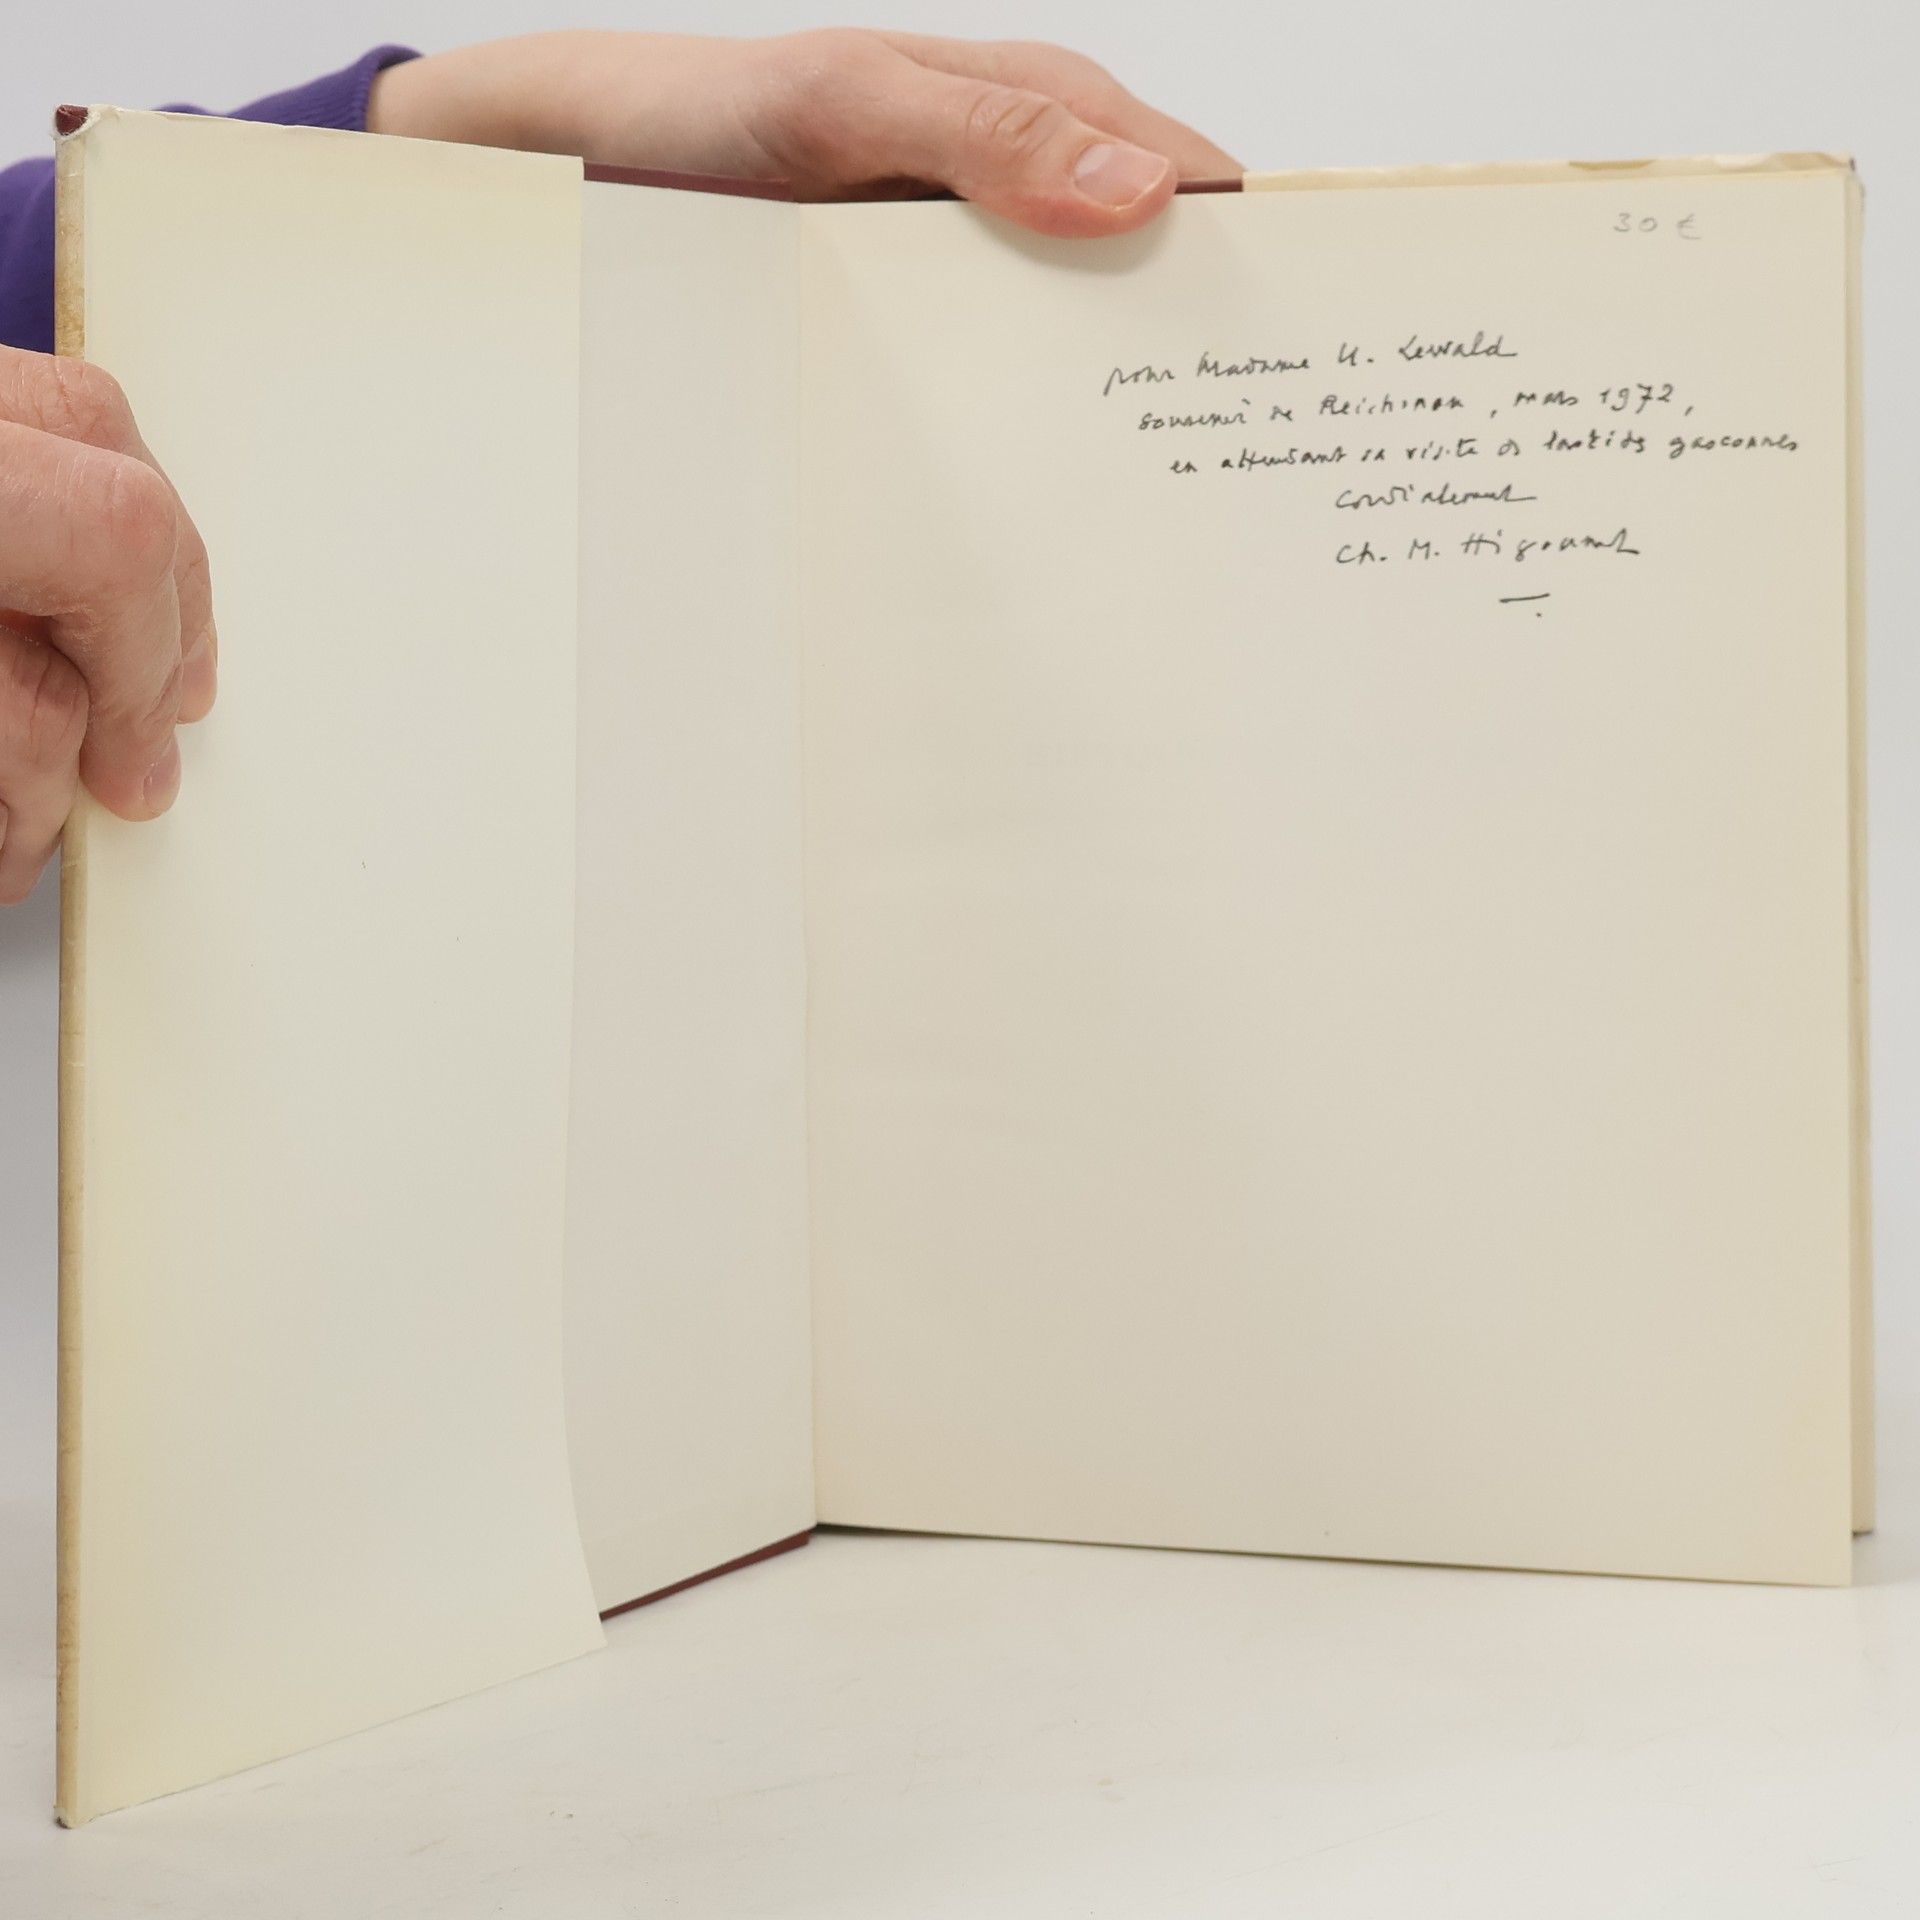 30 €
pour Madame U. Lewald
souvenir de Reichenau, mars 1972,
en attendant sa visite des bastides gasconnes
cordialement
Ch. M. Higounet